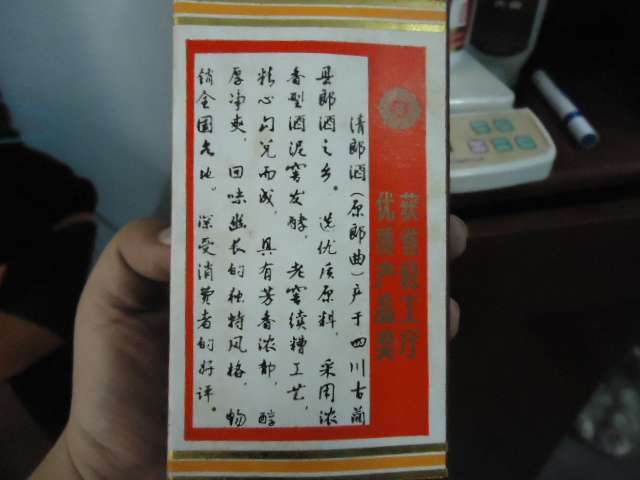 获省轻工厅
优质产品奖
清郎酒(原郎曲)产于四川古蔺
县郎酒之乡。选优质原料,采用浓
香型酒泥窖发酵,老窖续糟工艺,
精心勾兑而成,具有芳香浓郁,醇
厚净爽,回味悠长的独特风格,畅
销全国各地。深受消费者的好评。